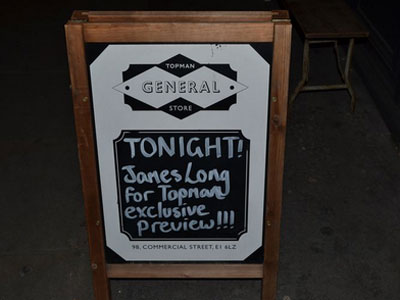 TOPMAN
GENERAL
STORE
TONIGHT!
James Long
for Topman
exclusive
Preview!!!
98, COMMERCIAL STREET, E1 6LZ